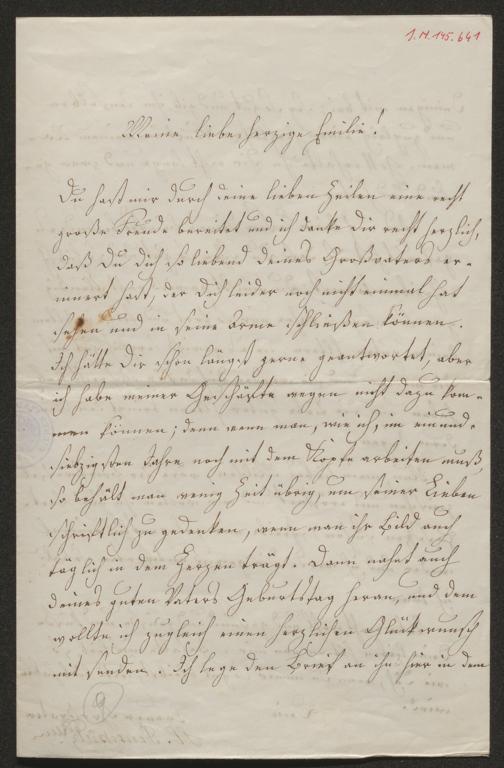 J.N. 145.641
Meine liebe herzige Emilie!
Du hast mir durch deine lieben Zeilen eine recht
große Freude bereitet und ich danke Dir recht herzlich,
daß Du Dich so liebend deines Großvaters er-
innert hast, der Dich leider noch nicht einmal hat
sehen und in seine Arme schließen können.
Ich hätte Dir schon längst gerne geantwortet, aber
ich habe meiner Geschäfte wegen nicht dazu kom-
men können; denn wenn man, wie ich, im einund-
siebzigsten Jahre noch mit dem Kopfe arbeiten muß,
so behält man wenig Zeit übrig, um seiner Lieben
schriftlich zu gedenken, wenn man ihr Bild auch
täglich in dem Herzen trägt. Dann nahet auch
deines guten Vaters Geburtstag heran, und dem
wollte ich zugleich einen herzlichen Glückwunsch
mit senden. Ich lege den Brief an ihn hier in dem